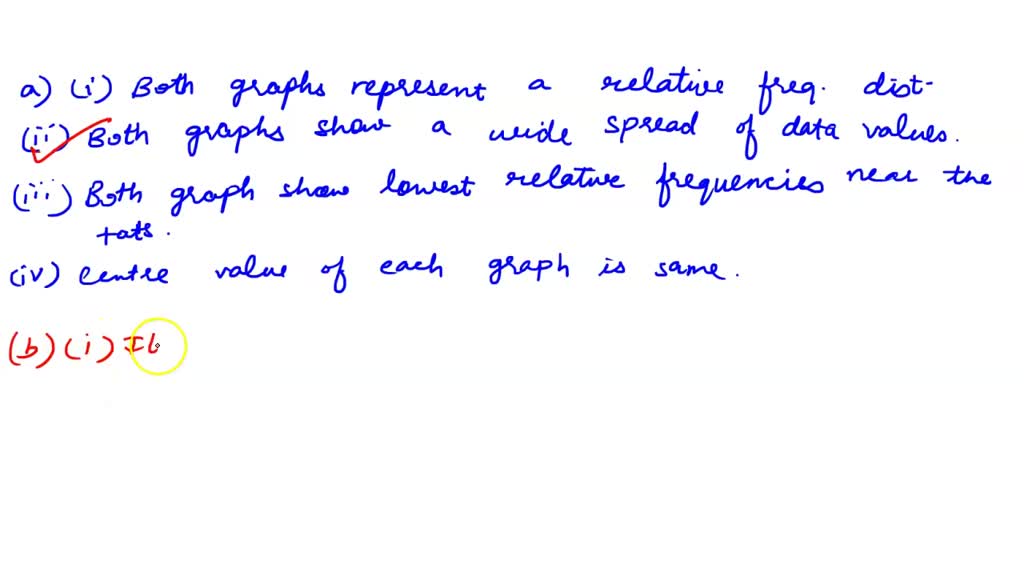 a) (i) Both graphs represent a relative freq. dist-
(ii) Both graphs show a wide spread of data values.
(iii) Both graph show lowest relative frequencies near the
tats.
(iv) centre value of each graph is same.
(b) (i) Ib